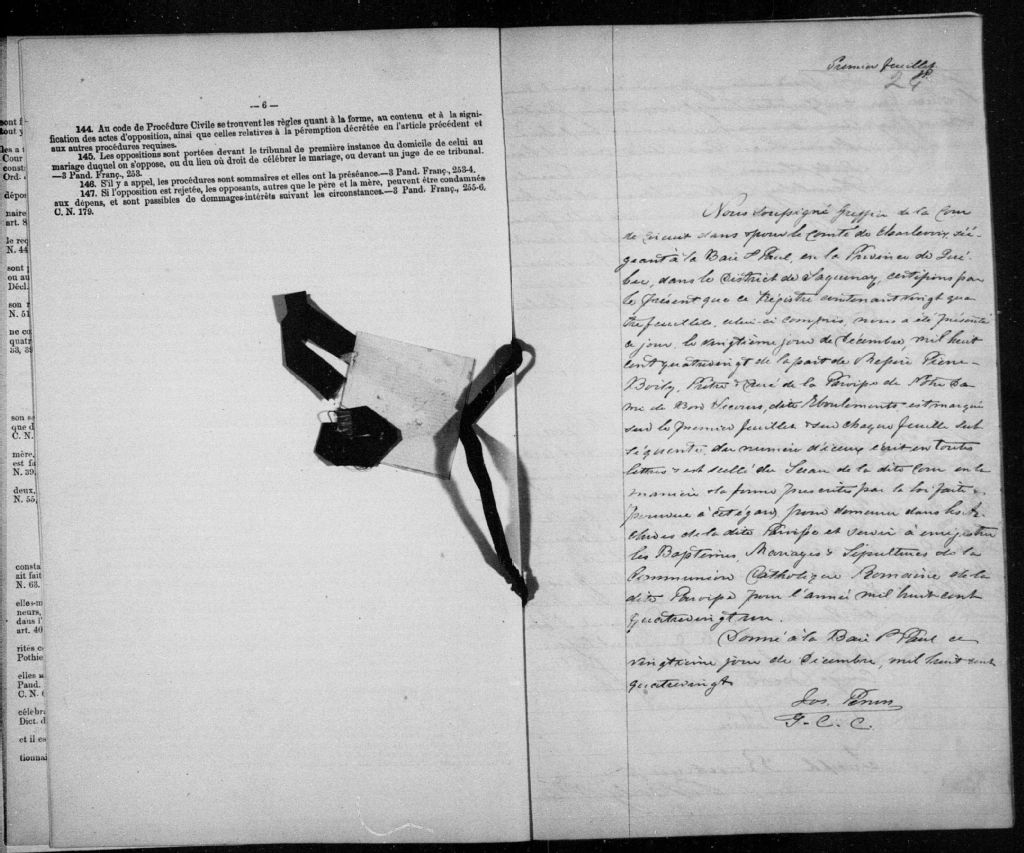 sont f
tout y
les a t
Cour
const
Ord.
dépos
naire
art. 8
le req
N. 44
sont
ou au
Décl.
son r
N. 51
ne co
quatr
53, 39
son se
que d
C. N.
mère,
est fa
N. 39,
deux,
N. 55,
consta
ait fait
N. 63.
elles-m
neurs,
dans l'
art. 40
rités c
Pothie
elles
Pand.
C. N.
célébr
Dict. d
et il es
tionnai
— 6 —
144. Au code de Procédure Civile se trouvent les règles quant à la forme, au contenu et à la signi-
fication des actes d'opposition, ainsi que celles relatives à la péremption décrétée en l'article précédent et
aux autres procédures requises.
145. Les oppositions sont portées devant le tribunal de première instance du domicile de celui au
mariage duquel on s'oppose, ou du lieu où droit de célébrer le mariage, ou devant un juge de ce tribunal.
—3 Pand. Franç., 253.
146. S'il y a appel, les procédures sont sommaires et elles ont la préséance.—3 Pand. Franç., 253-4.
147. Si l'opposition est rejetée, les opposants, autres que le père et la mère, peuvent être condamnés
aux dépens, et sont passibles de dommages-intérêts suivant les circonstances.—3 Pand. Franç., 255-6.
C. N. 179.
Premier feuillet
24
Nous soussigné Greffier de la Cour
de Circuit dans & pour le Comté de Charlevoix sié-
geant à la Baie St Paul, en la Province de Qué-
bec, dans le District de Saguenay, certifions par
le présent que ce Registre contenant vingt qua-
tre feuillets, celui-ci compris, nous a été présenté
ce jour, le vingtième jour de Décembre, mil huit
cent quatrevingt de la part de Messire Pierre
Boily, Prêtre & Curé de la Paroisse de N:tre Da-
me de Bon Secours, dite Eboulements est marqué
sur le premier feuillet & sur chaque feuille sub-
séquente, du numéro d'iceux écrit en toutes
lettres & est scellé du Sceau de la dite Cour en la
manière & la forme prescrites par la loi faite &
pourvue à cet égard, pour demeurer dans les Ar-
chives de la dite Paroisse et servir à enregistrer
les Baptêmes, Mariages & Sépultures de la
Communion Catholique Romaine de la
dite Paroisse pour l'année mil huit cent
quatrevingt un.
Donné à la Baie St Paul ce
vingtième jour de Décembre, mil huit cent
quatrevingt
Jos. Perron
G. C. C.